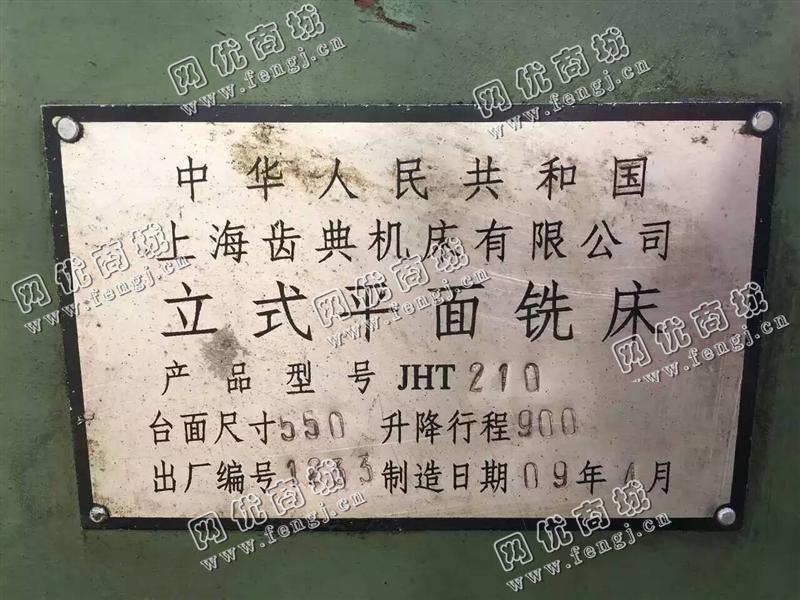 中华人民共和国
上海齿典机床有限公司
立式平面铣床
产品型号 JHT 210
台面尺寸 550 升降行程 900
出厂编号 制造日期 09年 月
网优商城
www.fengj.cn
网优商城
www.fengj.cn
网优商城
www.fengj.cn
网优商城
www.fengj.cn
网优商城
www.fengj.cn
网优商城
www.fengj.cn
网优商城
www.fengj.cn